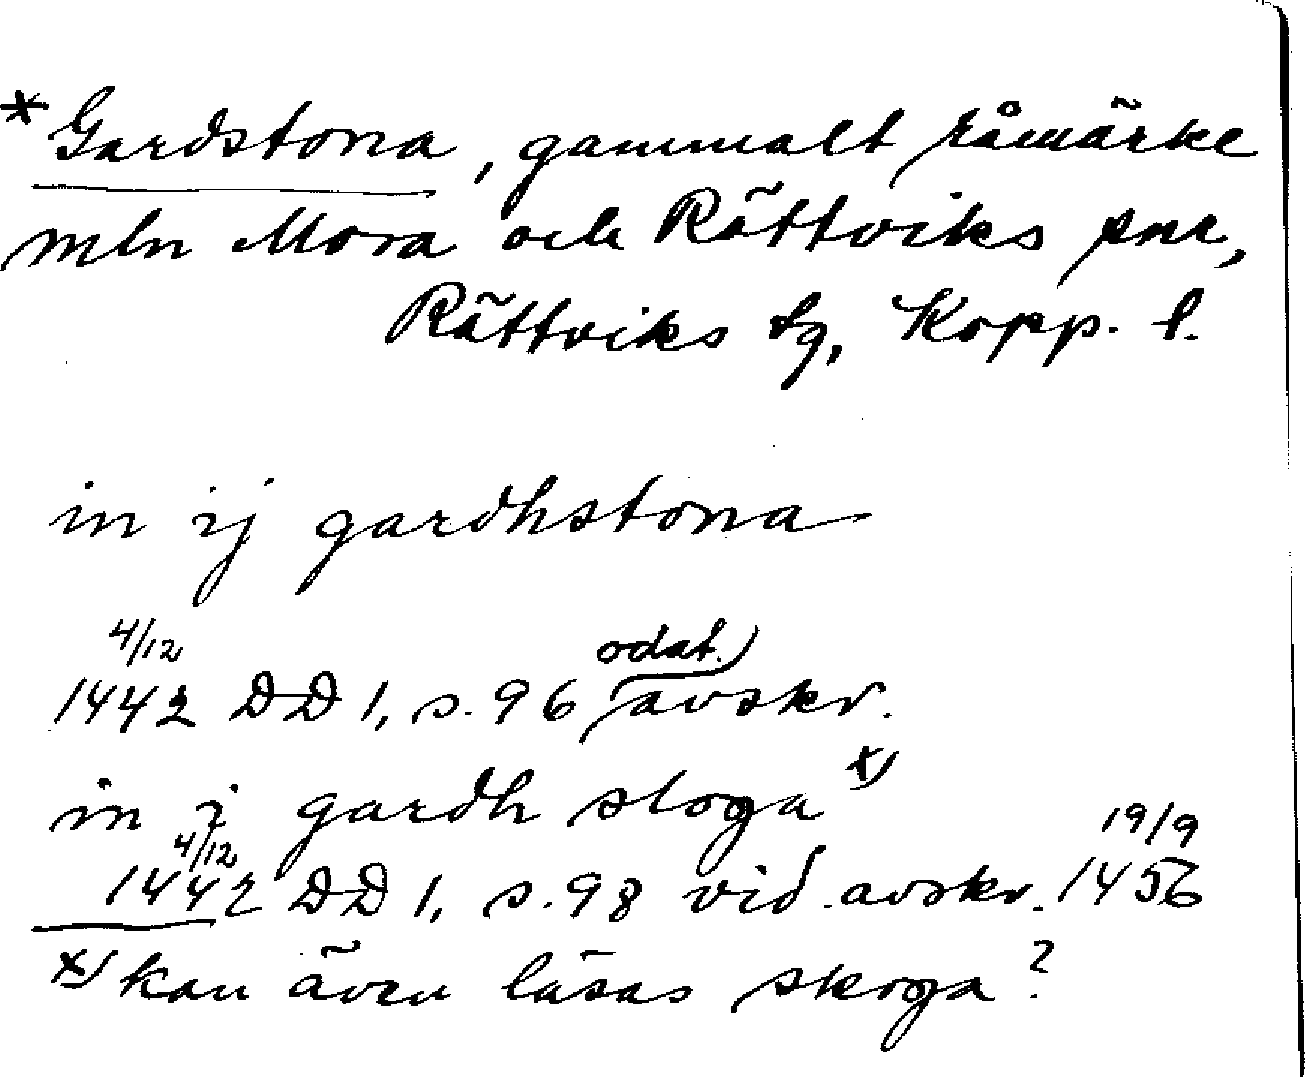 *Gardstona, gammalt råmärke
mln Mora och Rättviks snr,
Rättviks tg, Kopp. l.
in ij gardhstona
4/12 odat.)
1442 DD 1, s. 96 avskr.
in j gardh stoga x)
4/12 19/9
1442 DD 1, s. 98 vid. avskr. 1456
x) kan även läsas skoga?